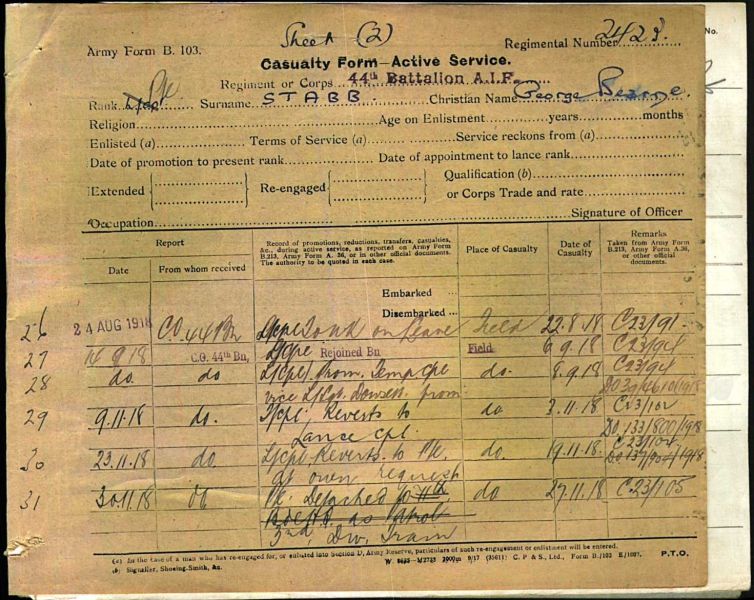 Sheet (2)
Army Form B. 103.
Regimental Number 2423.
No.
Casualty Form—Active Service.
Regiment or Corps 44th Battalion A.I.F.
Rank L/Cpl Pte Surname STABB. Christian Name George Pearse.
Religion Age on Enlistment years months
Enlisted (a) Terms of Service (a) Service reckons from (a)
Date of promotion to present rank Date of appointment to lance rank
Extended Re-engaged Qualification (b)
or Corps Trade and rate
Occupation Signature of Officer
Report
Date From whom received
Record of promotions, reductions, transfers, casualties, &c., during active service, as reported on Army Form B.213, Army Form A. 36, or in other official documents. The authority to be quoted in each case.
Place of Casualty
Date of Casualty
Remarks Taken from Army Form B.213, Army Form A. 36, or other official documents.
Embarked
Disembarked
26 24 AUG 1918 C.O. 44 Bn L/Cpl on leave Field 22.8.18 C23/91
27 9.18 C.O. 44th Bn, L/Cpl Rejoined Bn Field 6.9.18 C23/94
28 do. do L/Cpl prom. Temp Cpl do. 8.9.18 C23/94
vice L/Sgt from
29 9.11.18 do. T/Cpl Reverts to do 3.11.18 C23/102
Lance Cpl. DO 133/800/1918
30 23.11.18 do L/Cpl Reverts to Pte. do. 19.11.18 C23/104
at own request
31 30.11.18 do Pte. Detached to do 27.11.18 C23/105
as
3rd Div. Train
(a) In the case of a man who has re-engaged for, or enlisted into Section D, Army Reserve, particulars of such re-engagement or enlistment will be entered.
(b) Signaller, Shoeing-Smith, &c.
P.T.O.